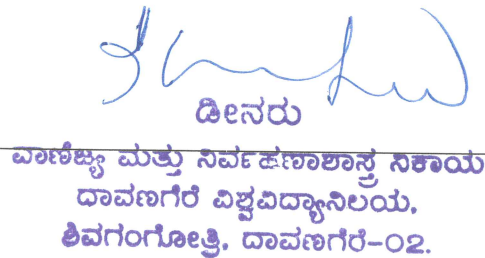 ಡೀನರು
ವಾಣಿಜ್ಯ ಮತ್ತು ನಿರ್ವಹಣಾಶಾಸ್ತ್ರ ನಿಕಾಯ
ದಾವಣಗೆರೆ ವಿಶ್ವವಿದ್ಯಾನಿಲಯ,
ಶಿವಗಂಗೋತ್ರಿ, ದಾವಣಗೆರೆ-02.